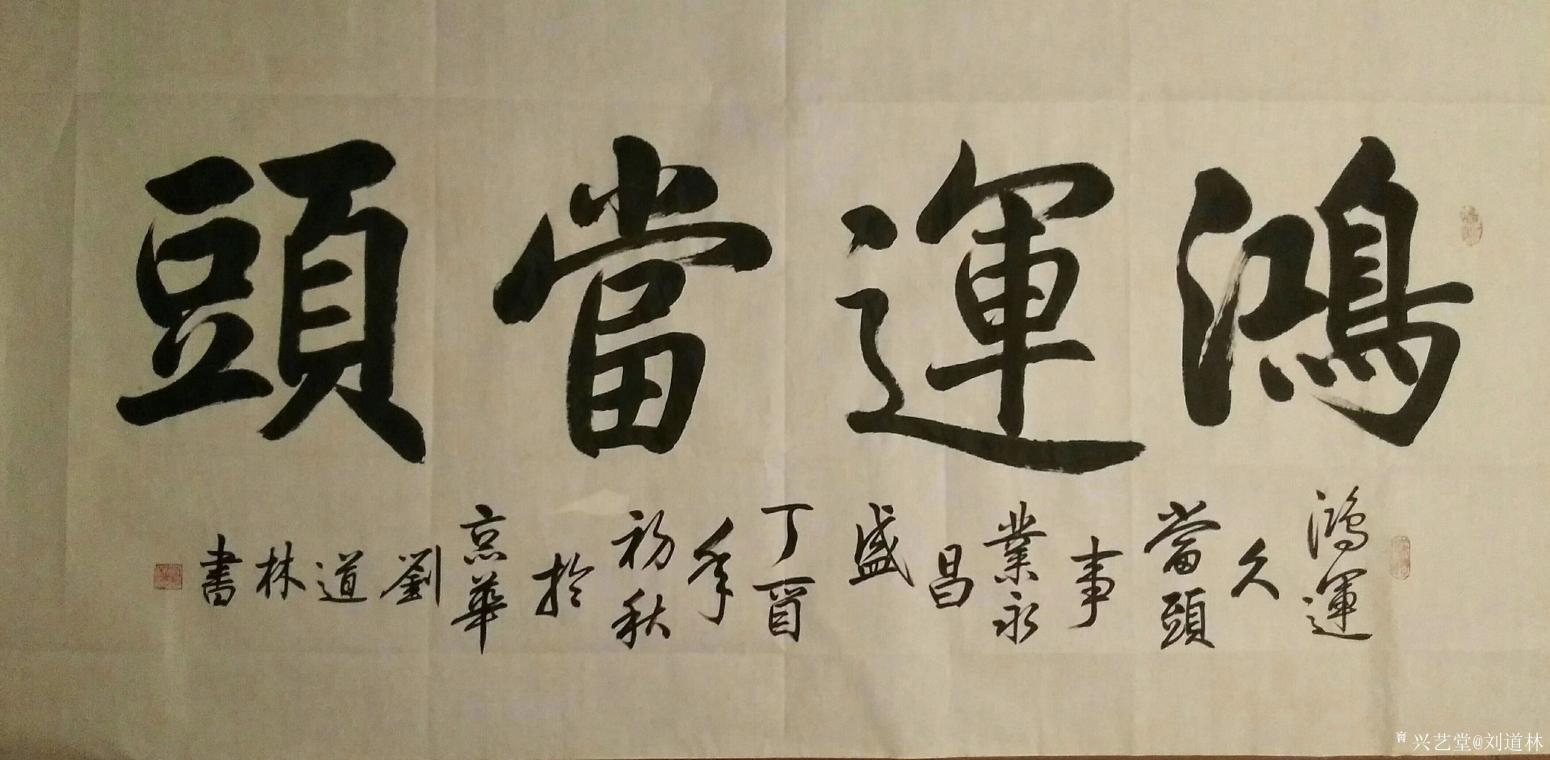 鴻運當頭
鴻運久當頭事業永昌盛丁酉年初秋於京華劉道林書
兴艺堂@刘道林